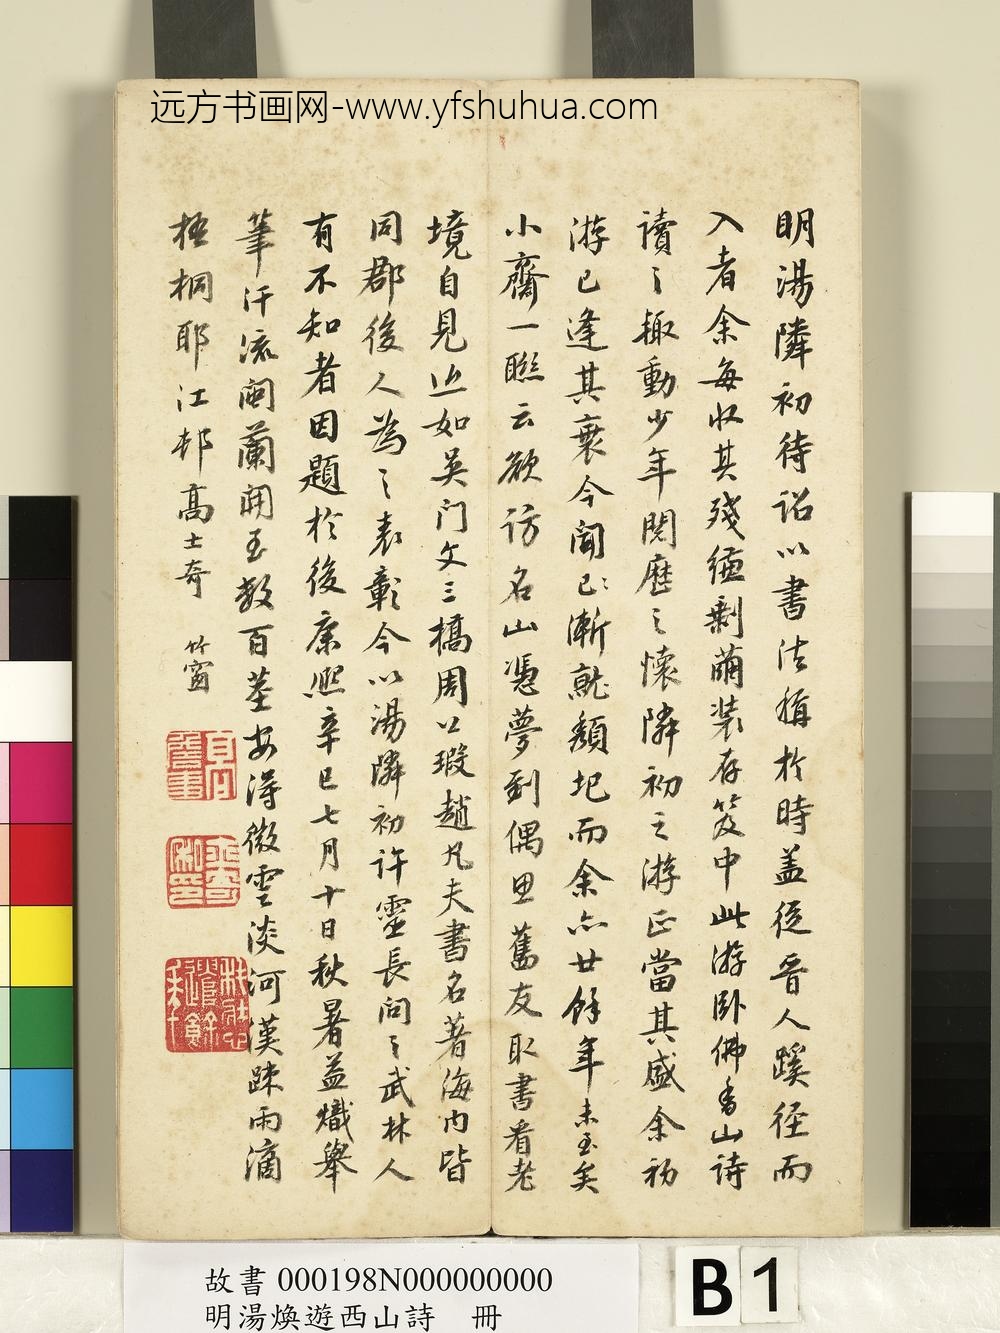 远方书画网-www.yfshuhua.com
明湯隣初待詔以書法擅於時盖從晋人蹊径而
入者余每收其殘縑剩繭装存笈中此游卧佛香山詩
讀之輙動少年閱歷之懷隣初之游正當其盛余初
游已逢其衰今聞已漸就頽圮而余亦廿餘年未至矣
小齋一聮云欲訪名山憑夢到偶思舊友取書看老
境自見近如吴门文三橋周公瑕趙凡夫書名著海内皆
同郡後人為之表彰今以湯隣初許靈長問之武林人
有不知者因題於後康熙辛巳七月十日秋暑益熾舉
筆汗流閩蘭開至数百莖安得微雲淡河漢踈雨滴
梧桐耶江邨高士奇 竹窗
故書 000198N000000000
明湯煥遊西山詩 冊
B 1